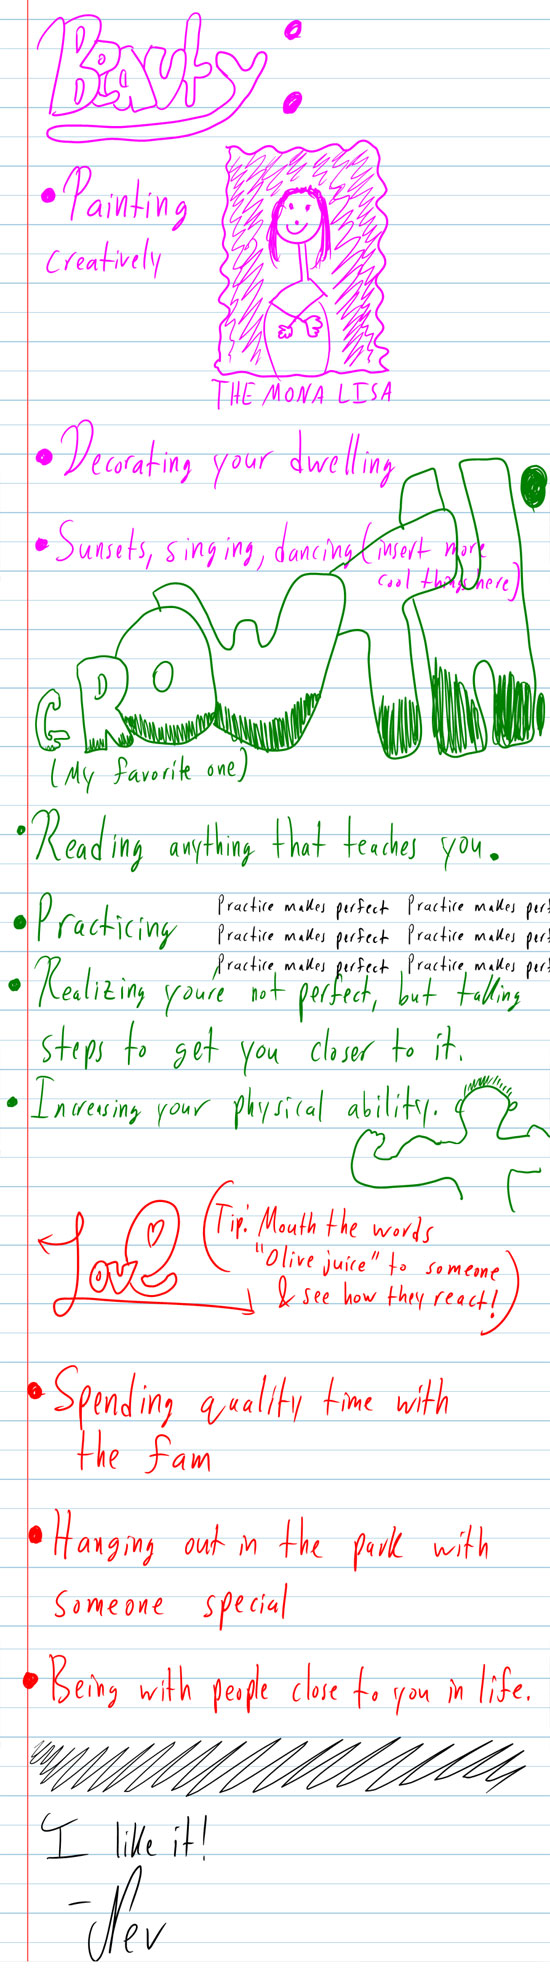 Beauty:
• Painting
creatively
THE MONA LISA
• Decorating your dwelling
• Sunsets, singing, dancing (insert more
cool things here)
GROWTH:
(My favorite one)
• Reading anything that teaches you.
• Practicing
Practice makes perfect Practice makes perf
Practice makes perfect Practice makes perf
Practice makes perfect Practice makes perf
• Realizing youre not perfect, but talking
steps to get you closer to it.
• Increasing your physical ability.
Love
(Tip: Mouth the words
"Olive juice" to someone
& see how they react!)
• Spending quality time with
the fam
• Hanging out in the park with
someone special
• Being with people close to you in life.
I like it!
-Nev